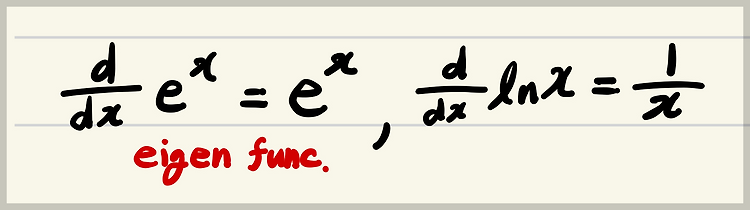 d/dx e^x = e^x , d/dx ln x = 1/x
eigen func.